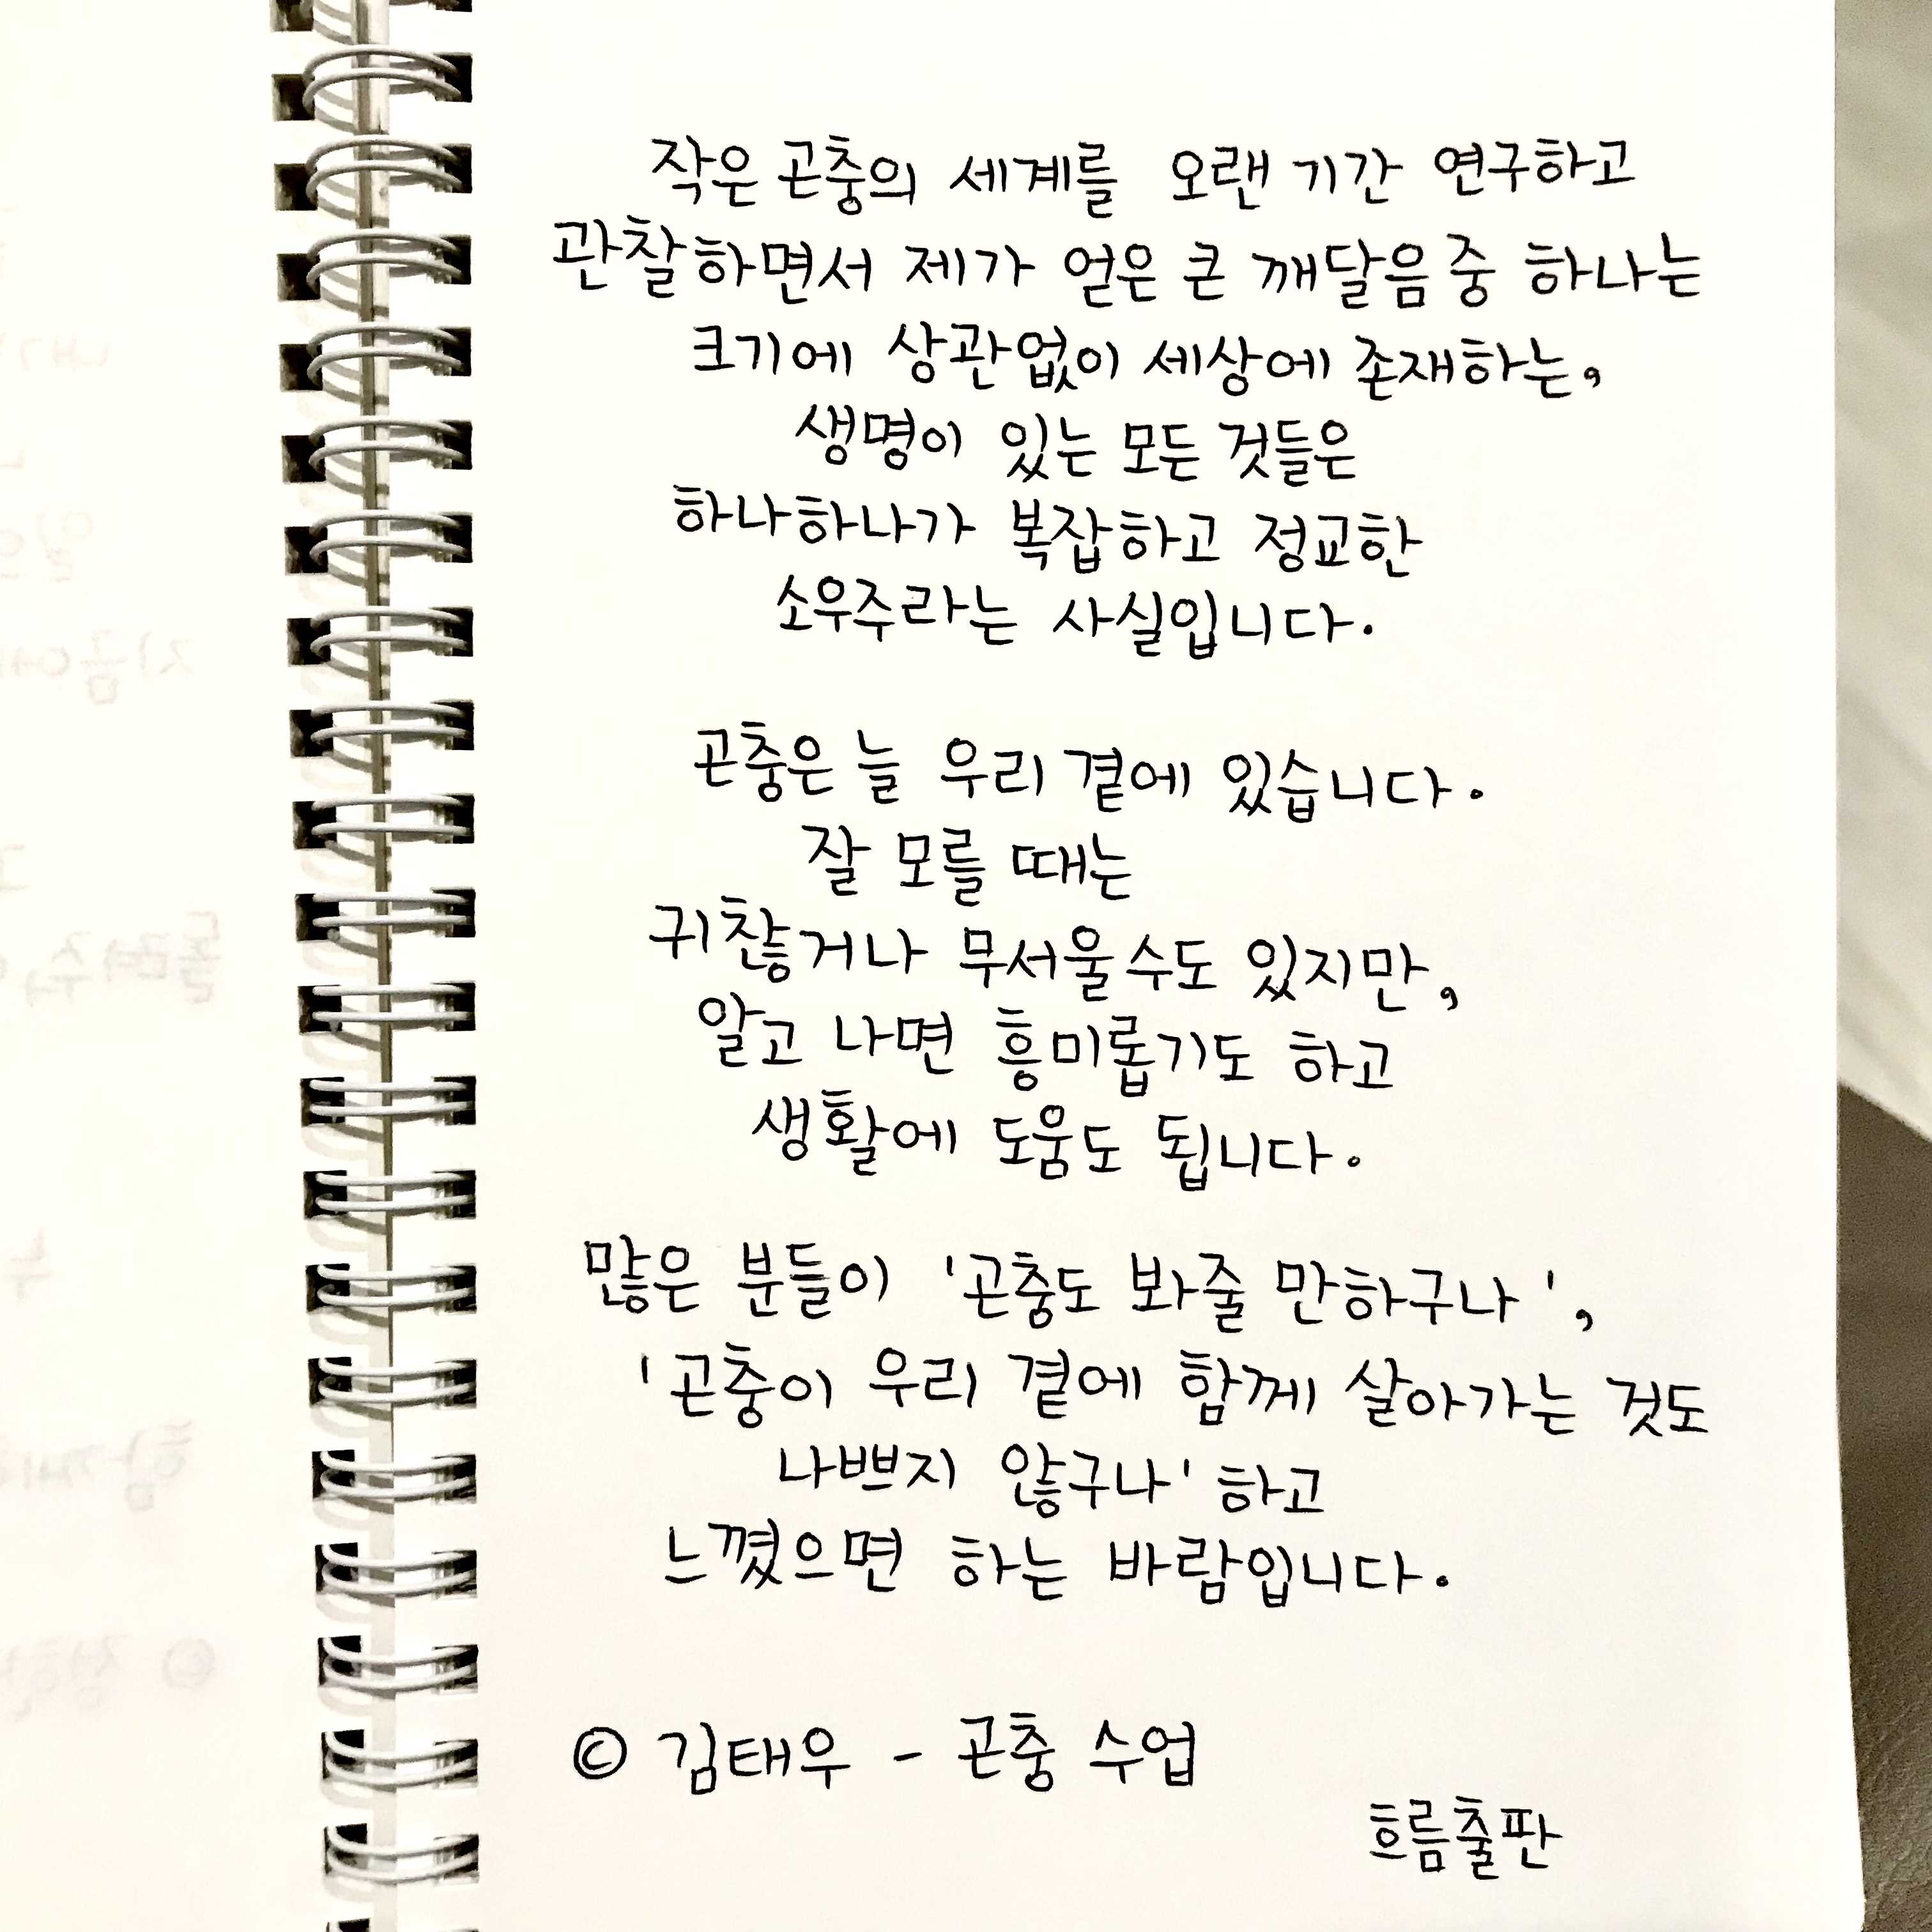 작은 곤충의 세계를 오랜 기간 연구하고
관찰하면서 제가 얻은 큰 깨달음 중 하나는
크기에 상관없이 세상에 존재하는,
생명이 있는 모든 것들은
하나하나가 복잡하고 정교한
소우주라는 사실입니다.
곤충은 늘 우리 곁에 있습니다.
잘 모를 때는
귀찮거나 무서울 수도 있지만,
알고 나면 흥미롭기도 하고
생활에 도움도 됩니다.
많은 분들이 '곤충도 봐줄 만하구나',
'곤충이 우리 곁에 함께 살아가는 것도
나쁘지 않구나' 하고
느꼈으면 하는 바람입니다.
© 김태우 - 곤충 수업
흐름출판